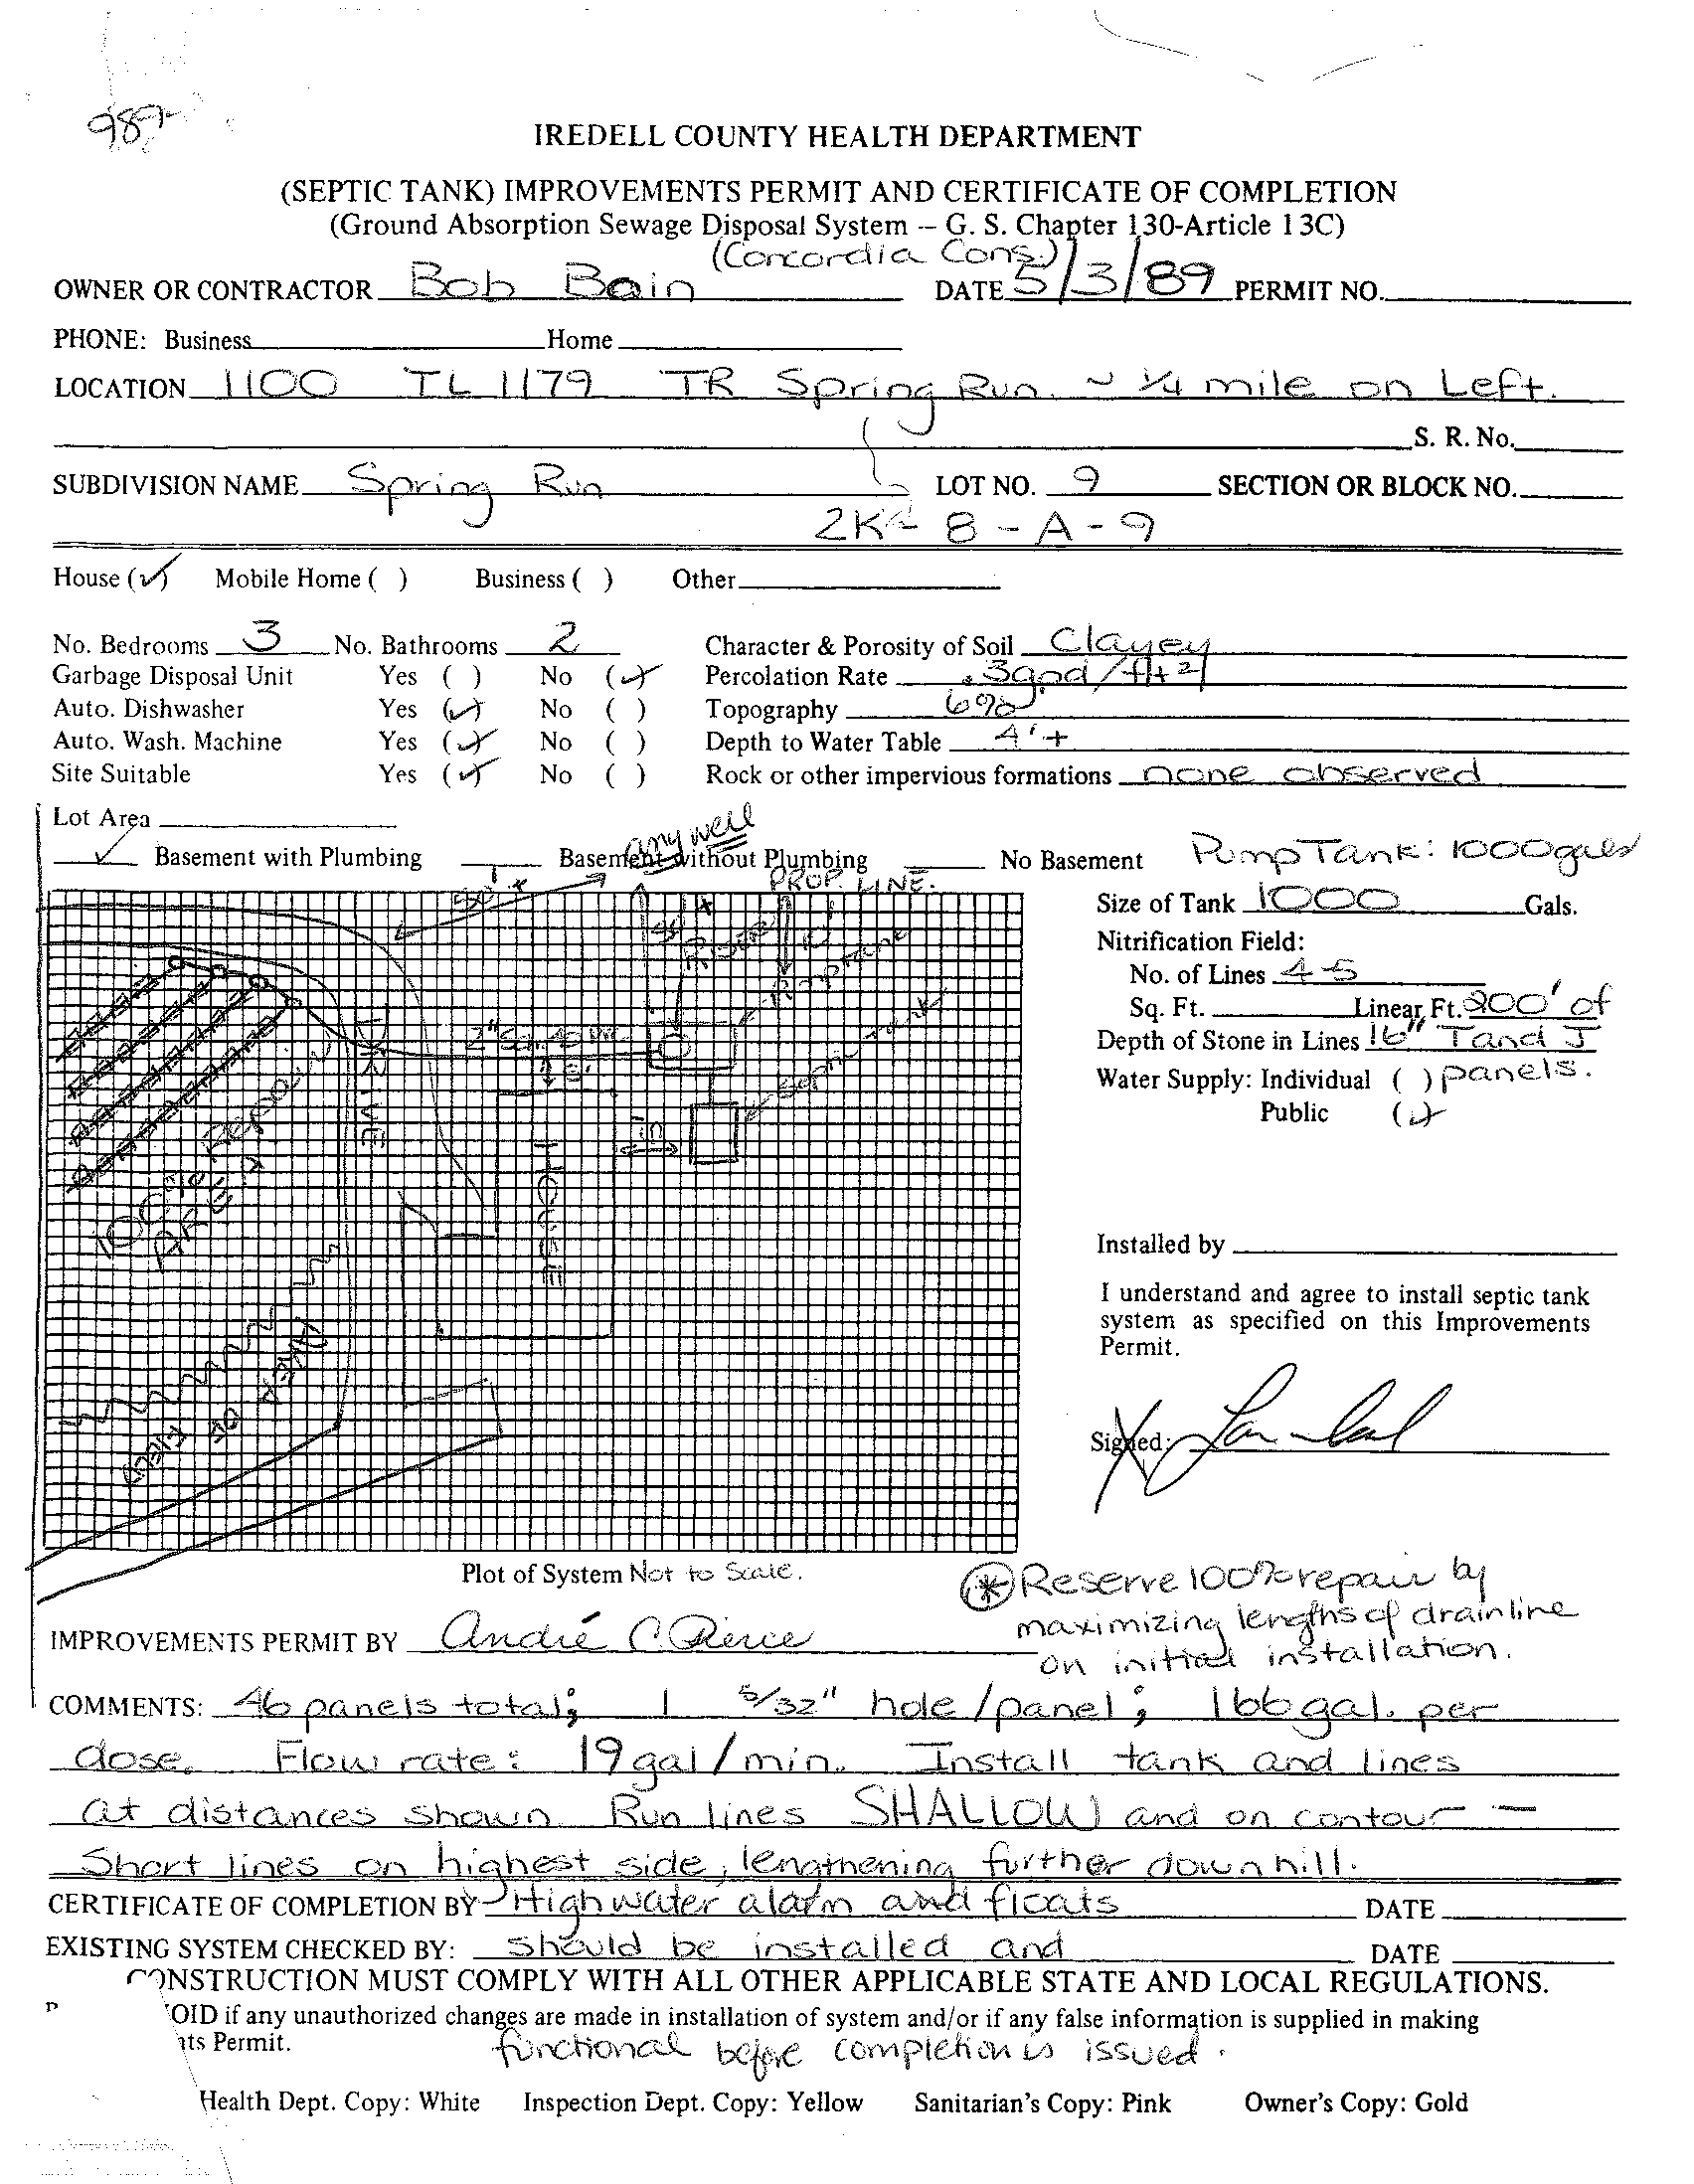 987
IREDELL COUNTY HEALTH DEPARTMENT
(SEPTIC TANK) IMPROVEMENTS PERMIT AND CERTIFICATE OF COMPLETION
(Ground Absorption Sewage Disposal System -- G. S. Chapter 130-Article 13C)
(Concordia Cons.)
OWNER OR CONTRACTOR Bob Bain DATE 5/3/89 PERMIT NO.
PHONE: Business Home
LOCATION 1100 TL 1179 TR Spring Run. ~ 1/4 mile on Left.
S. R. No.
SUBDIVISION NAME Spring Run LOT NO. 9 SECTION OR BLOCK NO.
2K 8-A-9
House (✓) Mobile Home ( ) Business ( ) Other
No. Bedrooms 3 No. Bathrooms 2 Character & Porosity of Soil Clayey
Garbage Disposal Unit Yes ( ) No (✓) Percolation Rate .3gpd/ft2
Auto. Dishwasher Yes (✓) No ( ) Topography 6%
Auto. Wash. Machine Yes (✓) No ( ) Depth to Water Table 4'+
Site Suitable Yes (✓) No ( ) Rock or other impervious formations none observed
Lot Area
any well
✓ Basement with Plumbing Basement without Plumbing No Basement Pump Tank: 1000gals
PROP. LINE.
Size of Tank 1000 Gals.
Nitrification Field:
No. of Lines 4-5
Sq. Ft. Linear Ft. 200' of
Depth of Stone in Lines 16" T and J
Water Supply: Individual ( ) panels.
Public (✓)
Riser
Pump Tank
Septic tank
DRIVE
HOUSE
100% Repair
AREA
AREA OF
FIELD
Installed by
I understand and agree to install septic tank
system as specified on this Improvements
Permit.
Signed:
Plot of System Not to Scale.
* Reserve 100% repair by
maximizing lengths of drainline
on initial installation.
IMPROVEMENTS PERMIT BY André C. Pierce
COMMENTS: 46 panels total; 1 5/32" hole/panel; 166 gal. per
dose. Flow rate: 19 gal/min. Install tank and lines
at distances shown. Run lines SHALLOW and on contour -
Short lines on highest side, lengthening further downhill.
CERTIFICATE OF COMPLETION BY High water alarm and floats DATE
EXISTING SYSTEM CHECKED BY: should be installed and DATE
CONSTRUCTION MUST COMPLY WITH ALL OTHER APPLICABLE STATE AND LOCAL REGULATIONS.
OID if any unauthorized changes are made in installation of system and/or if any false information is supplied in making
nts Permit.
functional before completion is issued.
Health Dept. Copy: White Inspection Dept. Copy: Yellow Sanitarian's Copy: Pink Owner's Copy: Gold